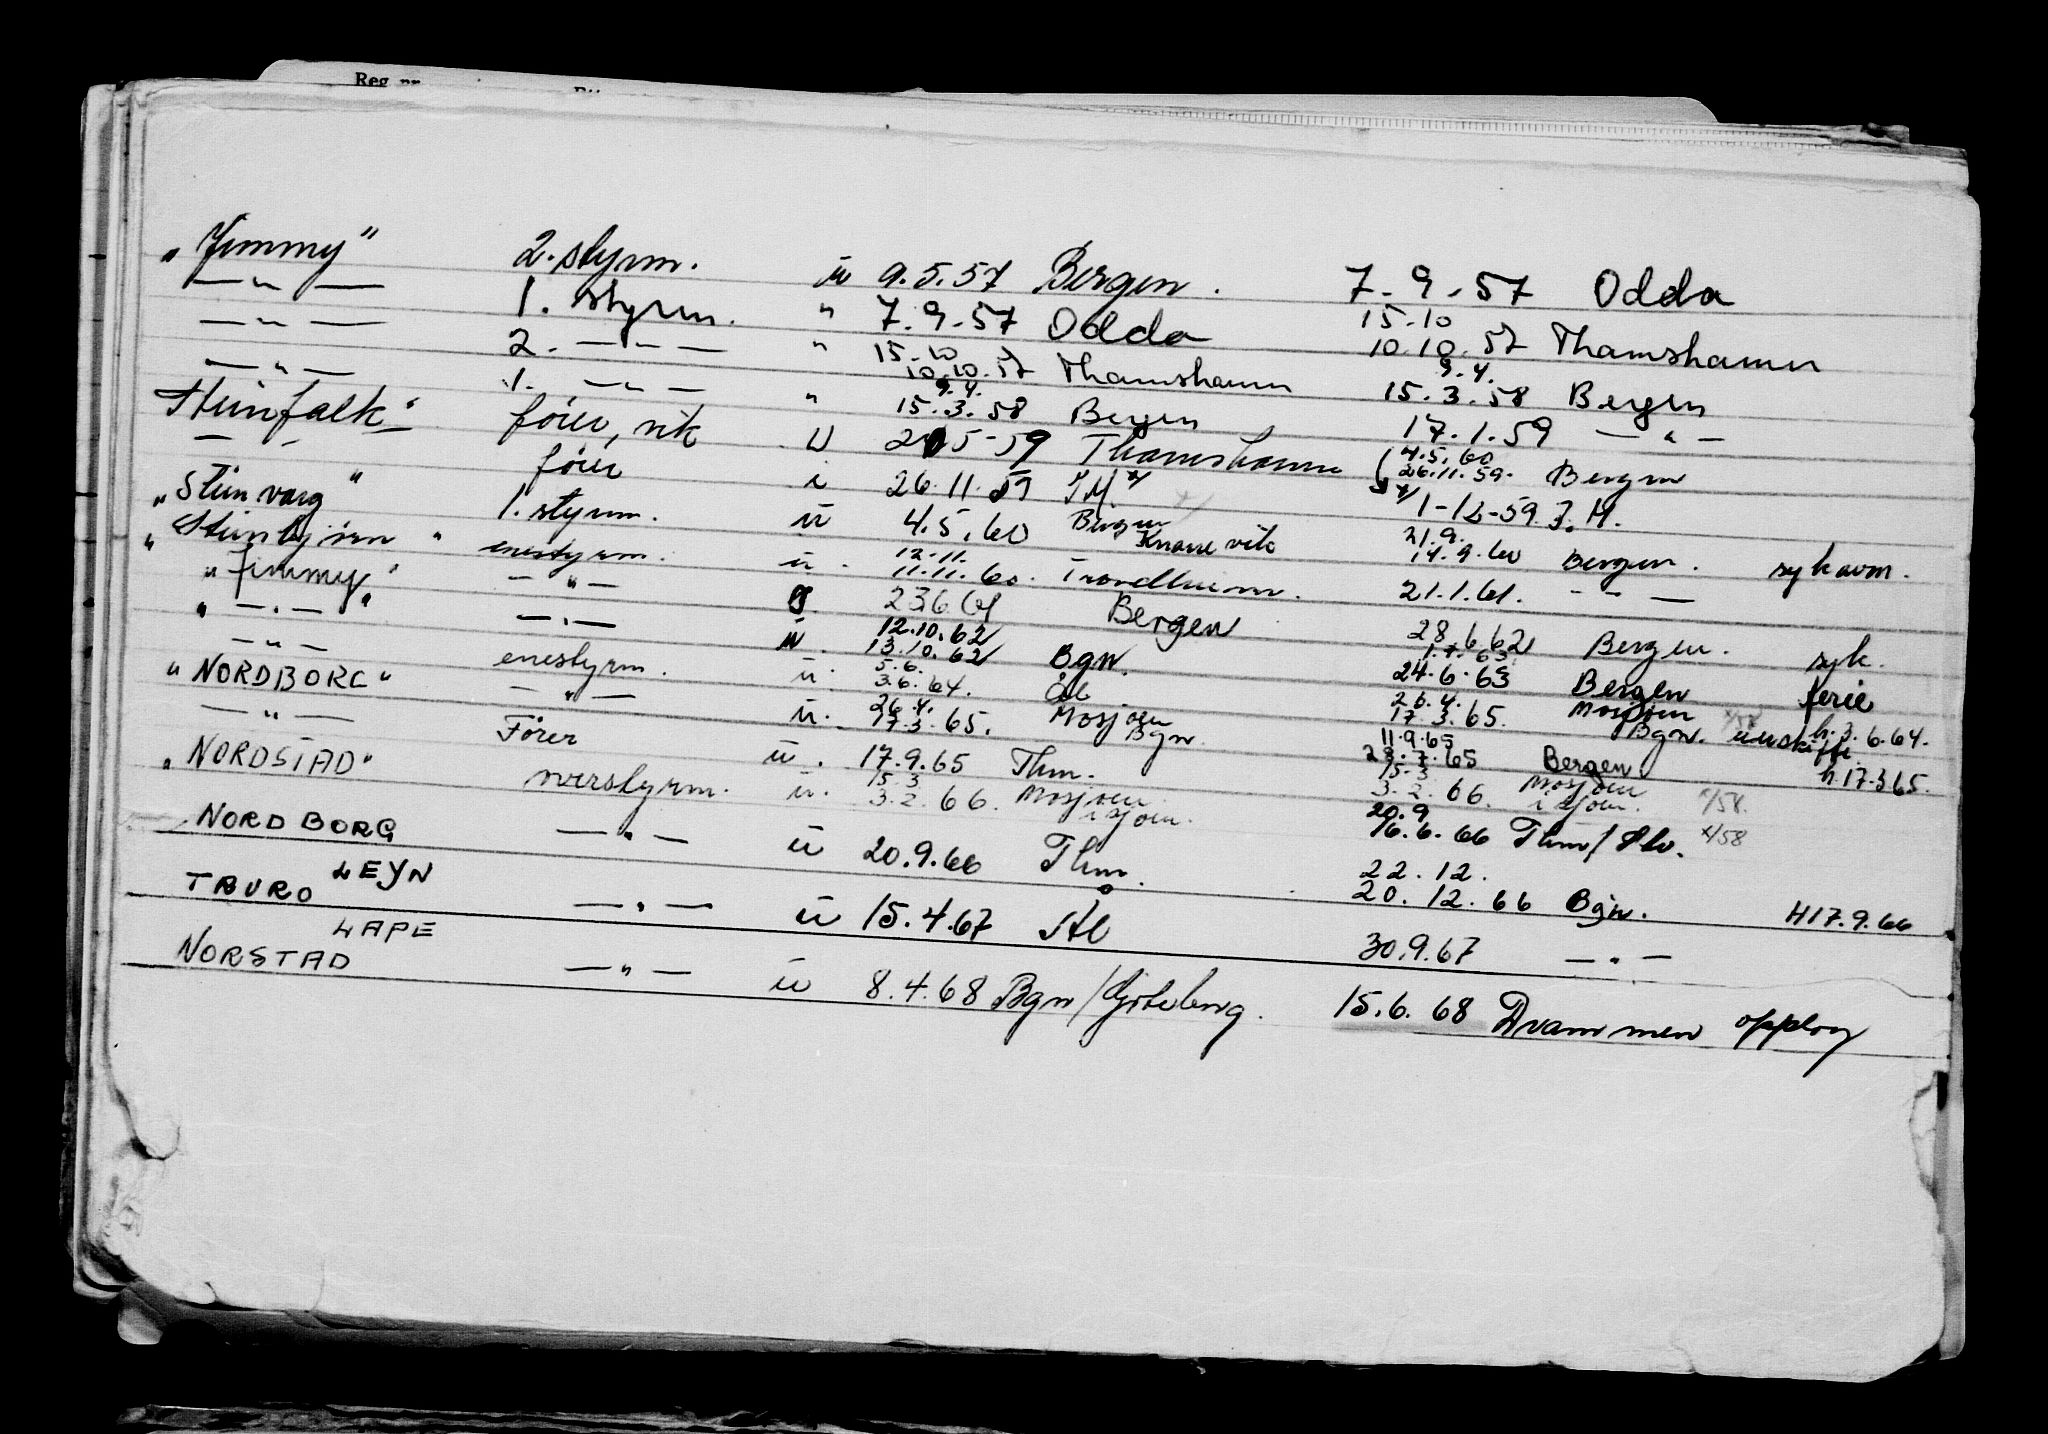 Reg. nr.
„Jimmy" 2. styrm. u 9.5.57 Bergen. 7-9-57 Odda
— " — 1. styrm. " 7.9.57 Odda 15.10 10.10.57 Thamshamn
— " — 2. — " — " 15.10 10.10.57 Thamshamn 9.4. 15.3.58 Bergen
— " — 1. — " — " 9.4. 15.3.58 Bergen 17.1.59 — " —
Steinfalk" förer, vik U 5-59 Thamshamn 4.5.60 26.11.59. Bergen
— " förer 26.11.59 x/ x/ 1-12-59
„Steinvarg" 1. styrm. u 4.5.60 Bergen 21.9. 14.9.60 Bergen. sykavm.
„Steinbjörn" enestyrm. u. 12.11. 11.11.60. Trondheim. 21.1.61. — " —
„Jimmy" — " — 23.6.61 Bergen 28.6.62 Bergen. syk.
„ — " — " — " — u. 12.10.62 13.10.62 Bgn. 1.7.63 24.6.63 Bergen ferie
— " — enestyrm. u. 5.6. 3.6.64. 26.4. 17.3.65. Mosjøen Bgn. h. 3.6.64.
„NORDBORG" — " — u. 26.4. 17.3.65. Mosjøen Bgn. 11.9.65 28.7.65 Bergen h. 17.3.65.
— " — Förer u. 17.9.65 Thm. 15.3 3.2.66. Mosjøen i sjøen. x/58.
„NORDSTAD" overstyrm. u. 15.3 3.2.66. Mosjøen i sjøen. 20.9 16.6.66 Thm/ x/58
NORDBORG — " — u 20.9.66 Thm. 22.12. 20.12.66 Bgn. H17.9.66
LEYN
TBURO — " — u 15.4.67 30.9.67 — " —
LAPE
NORSTAD — " — u 8.4.68 Bgn/Göteborg. 15.6.68 Drammen opplag